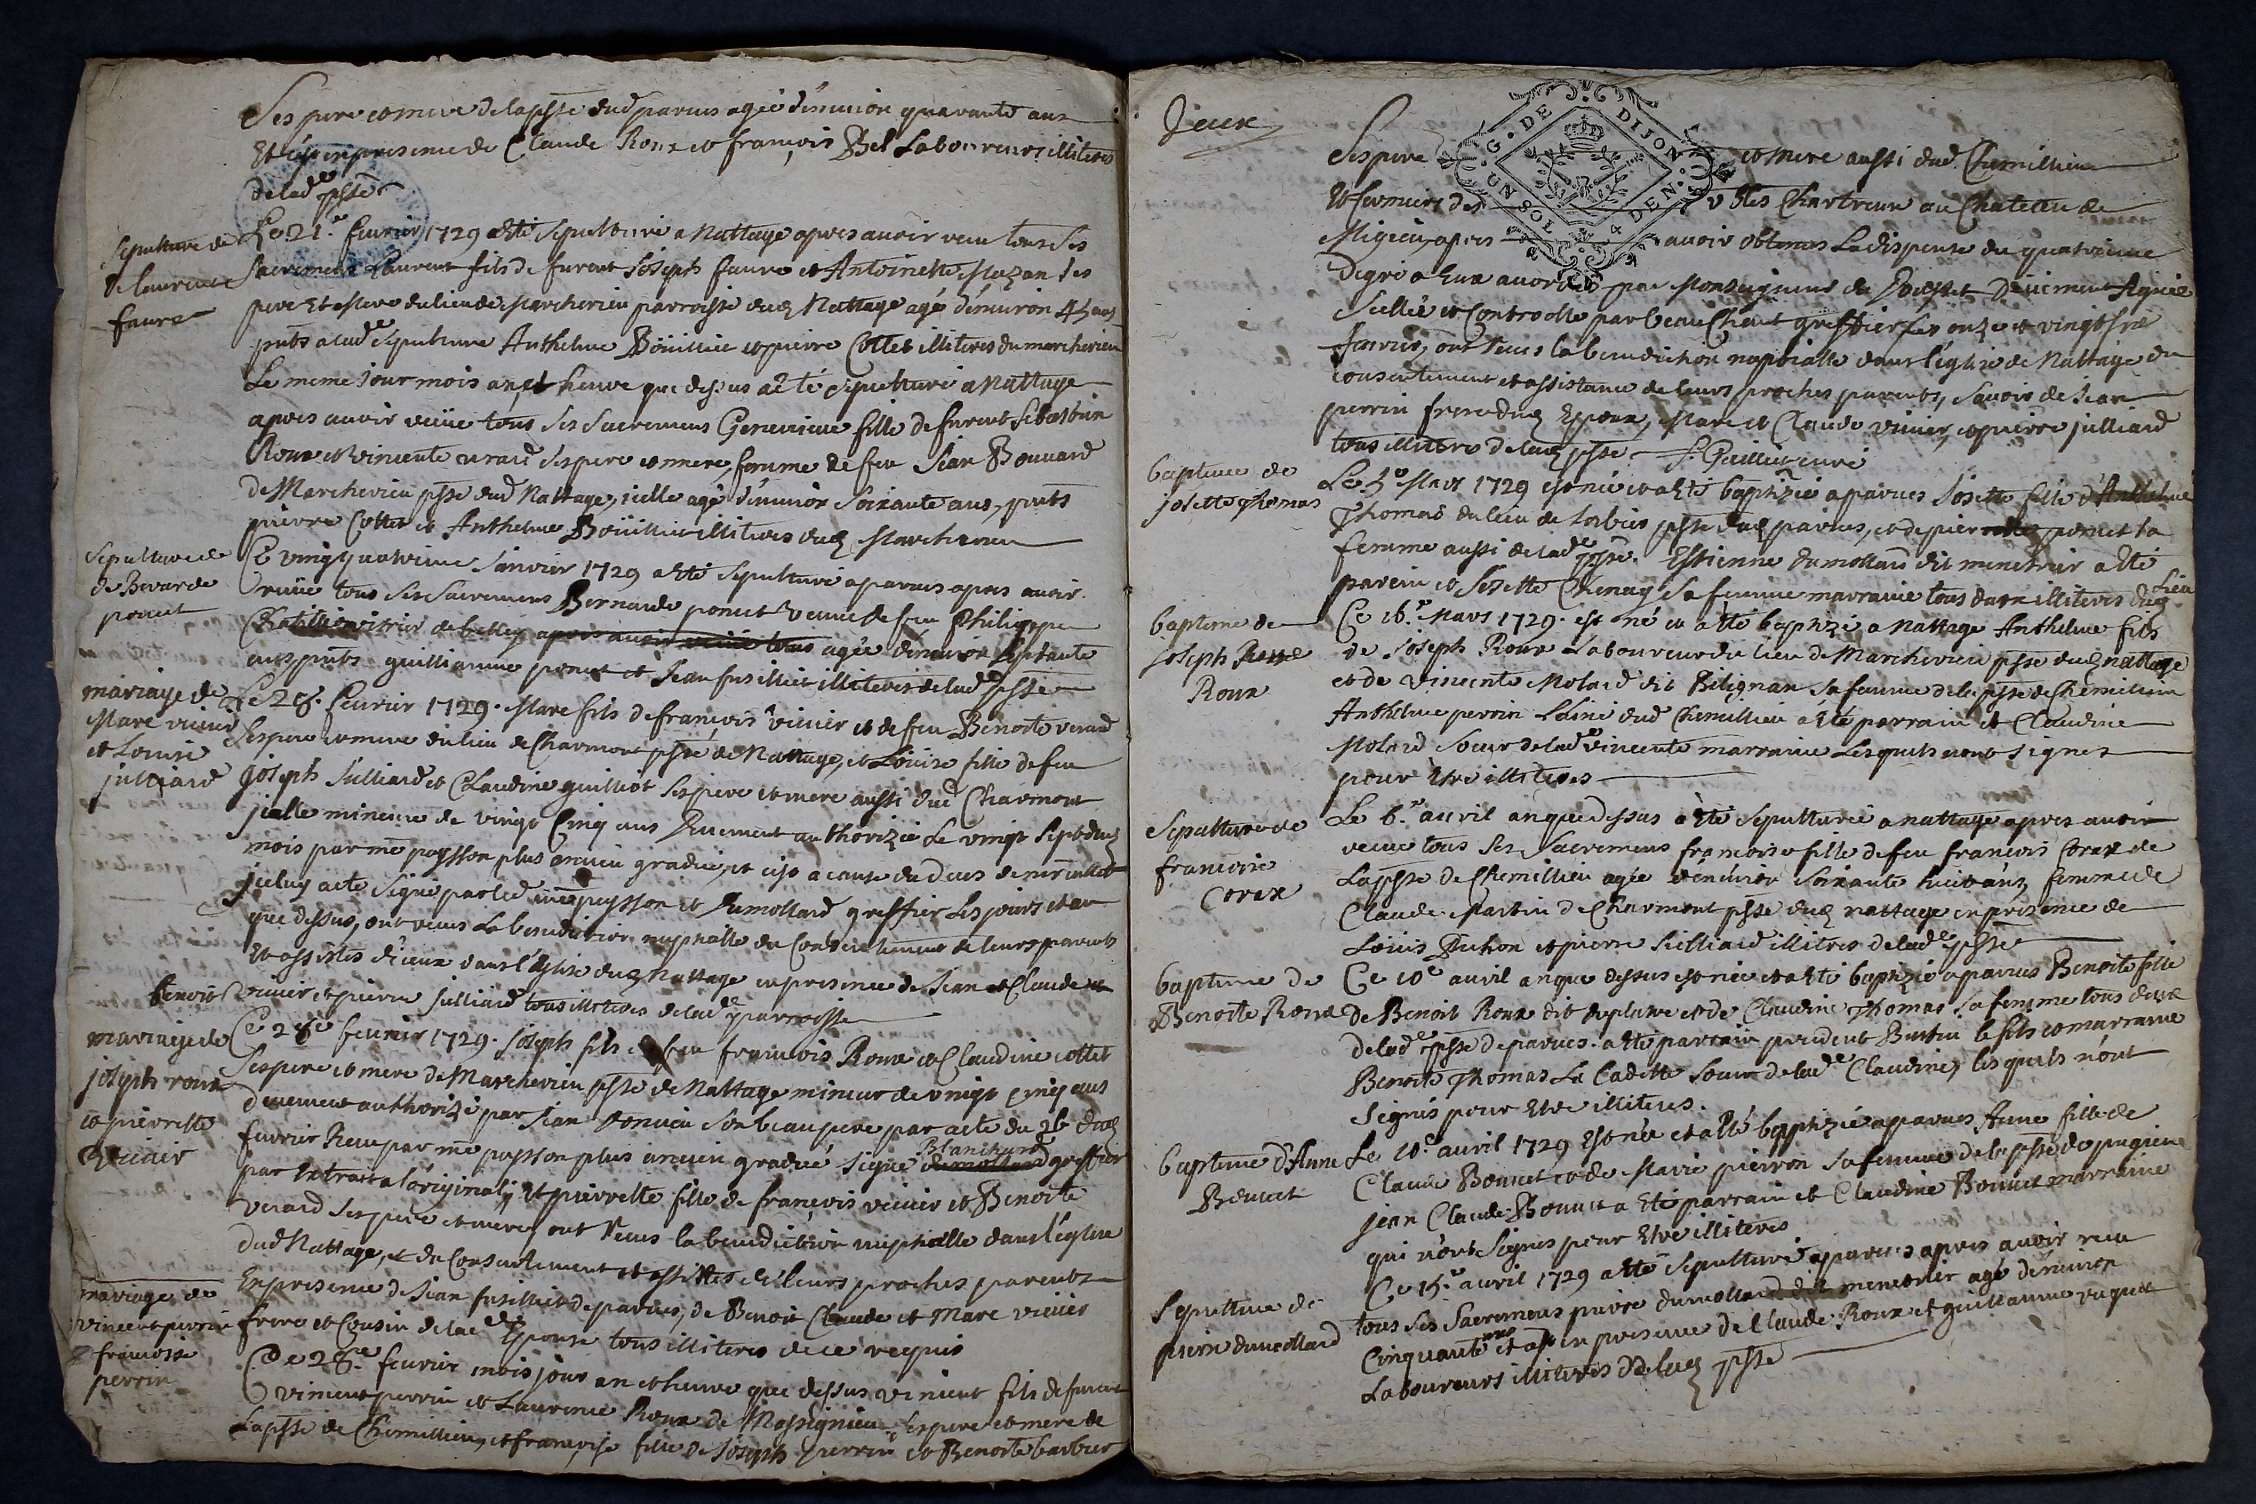 Ses pere et mere de la psse dud parves agée d'environ quarante ans
Et ce en presence de Claude Roux et françois Bel Laboureurs illiteres
de lad psse
Sepulture de
de laurent
faure
Le 21e fevrier 1729 a été sepulturé a Nattage apres avoir recu tous ses
Sacremens Laurent fils de furent Joseph faure et Antoinette Mazan ses
pere et mere du lieu de Marcherieu parroisse dud Nattage agé d'environ 45 ans
pnts a lad sepulture Anthelme Boüillier et pierre Collet illiteres du marcherieu
Le meme jour mois an et heure que dessus a été sepulturé a Nattage
apres avoir reçüe tous ses sacremens Genevieve fille de furent Sebastien
Roux et vincente verard ses pere et mere femme de feu Jean Bouvard
de Marcherieu psse dud Nattage, icelle agé d'environ soixante ans, pnts
pierre Collet et Anthelme Boüillier illiteres dud Marcherieu
Sepulture de
de Bernarde
poncet
Ce vingtquatrieme Janvier 1729 a été sepulturé a parves apres avoir
recüe tous ses Sacremens Bernarde poncet veuve de feu Philippe
Chatillion vitrier de belley apres avoir recüe tous agée d'environ septante
ans pnts guilliaume poncet et Jean fusillier illiteres de lad psse
mariage de
Marc vivier
et Louise
julliard
Le 28. fevrier 1729. Marc fils de françois vivier et de feu Benoite verard
ses pere et mere du lieu de Charmont psse de Nattage, et Loüise fille de feu
Joseph Julliard et Claudine guilliot ses pere et mere aussi dud Charmont
jcelle mineure de vingt Cinq ans Duement authorizée Le vingt sept dud
mois par me peysson plus ancien gradué, et ce a cause du deces de mr
jceluy acte signé par led me peysson et Dumollard greffier Les jours et an
que dessus, ont recus La benediction nuptialle du Consentement de leurs parents
et assistés d'iceux dans l'Eglise dud Nattage en presence de Jean et Claude et
benoit vivier, et pierre Julliard tous illiteres de lad parroisse
mariage de
joseph roux
et pierrette
vivier
Ce 28e fevrier 1729. Joseph fils de feu francois Roux et Claudine collet
ses pere et mere de Marcherieu psse de Nattage mineur de vingt cinq ans
duement authorizé par Jean son beaupere par acte du 26 dud
fevrier Recu par me peysson plus ancien gradué signé dumollard Blanchard greffier
par Extrait a l'original, et pierrette fille de françois vivier et Benoite
verard ses pere et mere, ont recus la benediction nuptialle dans l'eglise
dud Nattage, et du Consentement et assistés de leurs proches parents
En presence de Jean fusillier de parves, de Benoit Claude et Marc vivier
frere et Cousin de lad Epouse tous illiteres de ce requis
mariage de
vincent perrin
francoise
perrin
Ce 28e fevrier mois jour an et heure que dessus vincent fils de furent
vincent perrin et Laurence Roux de Massignieu ses pere et mere de
La psse de Chemillieu, et françoise fille de Joseph perrin et Benoite barbier
Deux
G. DE DIJON
UN SOL. 4 DEN.
Ses pere et mere aussi dud Chemillieu
et fermiers des Chartreux au Chateau de
Migieu, apres avoir obtenus La dispense du quatrieme
degré a Eux accordée par Monseigneur Düement signée
Scellée et Controlle par beauChant greffier les onze et vingt
fevrier, ont recus la benediction nuptialle dans l'eglise de Nattage du
consentement et assistance de leurs proches parents, scavoir de Jean
perrin frere dud Epoux, Marc et Claude vivier, et pierre julliard
tous illiteres de lad psse. Guillier curé
baptême de
josette thomas
Le 5e Mars 1729 est née et a été baptizée a parves Josette fille d'Anthelme
Thomas du lieu de sorbier psse dud parves, et de pierrette poncet sa
femme aussi de lad psse. Estienne dumollard dit menetrier a été
parrain et Josette Chenay sa femme marraine tous deux illiteres dud Lieu
baptême de
joseph
Roux
Ce 16e Mars 1729. est né et a été baptizé a Nattage Anthelme fils
de Joseph Roux Laboureur du lieu de Marcherieu psse dud nattage
et de vincente Molard dit Betignan sa femme de la psse de Chemillieu
Anthelme perrin L'ainé dud Chemillieu a été parrain et Claudine
Molard soeur de lad vincente marraine Lesquels n'ont signes
pour Etre illiteres
Sepulture de
francoise
Corax
Le 6e avril an que dessus a été sepulturée a nattage apres avoir
recüe tous ses sacremens francoise fille de feu francois Corax de
La psse de Chemillieu agée d'environ soixante huit ans femme de
Claude Martin de Charmont psse dud nattage en presence de
Loüis Duhon et pierre Julliard illitres de lad psse
baptême de
Benoite Roux
Ce 10e avril an que dessus est née et a été baptizée a parves Benoite fille
de Benoit Roux dit et de Claudine Thomas sa femme tous deux
de lad psse de parves. a été parrain le fils et marraine
Benoite Thomas La Cadette soeur de lad Claudine, lesquels n'ont
signés pour Etre illiteres.
baptême d'Anne
Bouvet
Le 10e avril 1729 Est née et a été baptizée a parves Anne fille de
Claude Bonnet et de Marie pierron sa femme de la psse de pugieu
jean Claude Bonnet a été parrain et Claudine Bonnet marraine
qui n'ont signés pour Etre illiteres
Sepulture de
pierre dumollard
Ce 15e avril 1729 a été sepulturé a parves apres avoir recu
tous ses Sacremens pierre dumollard dit menetrier agé d'environ
Cinquante ans et en presence de Claude Roux et guillaume
Laboureurs illiteres de lad psse